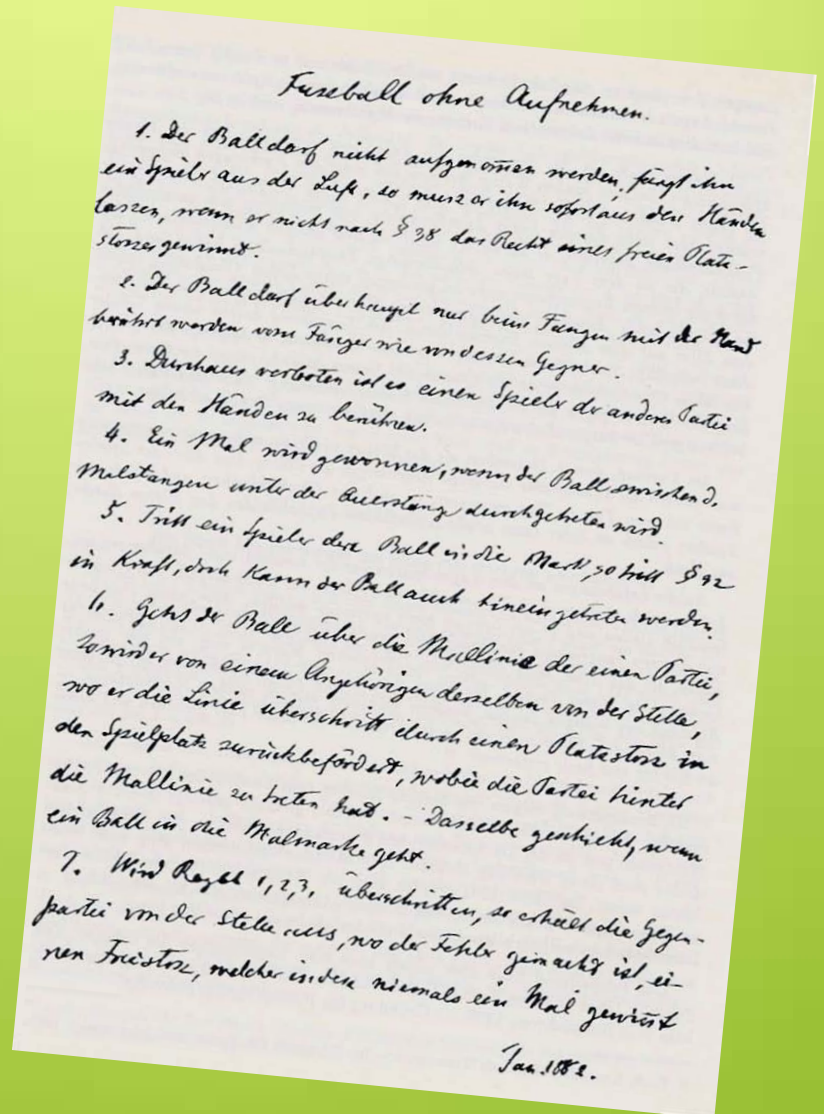 Fuszball ohne Aufnehmen.
1. Der Ball darf nicht aufgenom̅en werden, fängt ihn
ein Spieler aus der Luft, so musz er ihn sofort aus den Händen
laszen, wenn er nicht nach § 38 das Recht eines freien Platz-
stoszes gewinnt.
2. Der Ball darf überhaupt nur beim Fangen mit der Hand
berührt werden vom Fänger wie von deszen Gegner.
3. Durchaus verboten ist es einen Spieler der anderen Partei
mit den Händen zu berühren.
4. Ein Mal wird gewonnen, wenn der Ball zwischen d.
Malstangen unter der Querstange durchgetreten wird.
5. Tritt ein Spieler den Ball in die Mark, so tritt §
in Kraft, doch kann der Ball auch hineingetreten werden.
6. Geht der Ball über die Mallinie der einen Partei,
so wird er von einem Angehörigen derselben von der Stelle,
wo er die Linie überschritt durch einen Platzstosz in
den Spielplatz zurückbefördert, wobei die Partei hinter
die Mallinie zu treten hat. - Dasselbe geschieht, wenn
ein Ball in die Malmarke geht.
7. Wird Regel 1, 2, 3, überschritten, so erhält die Gegen-
partei von der Stelle aus, wo der Fehler gemacht ist, ei-
nen Freistosz, welcher indesz niemals ein Mal gewin̅t
Jan.